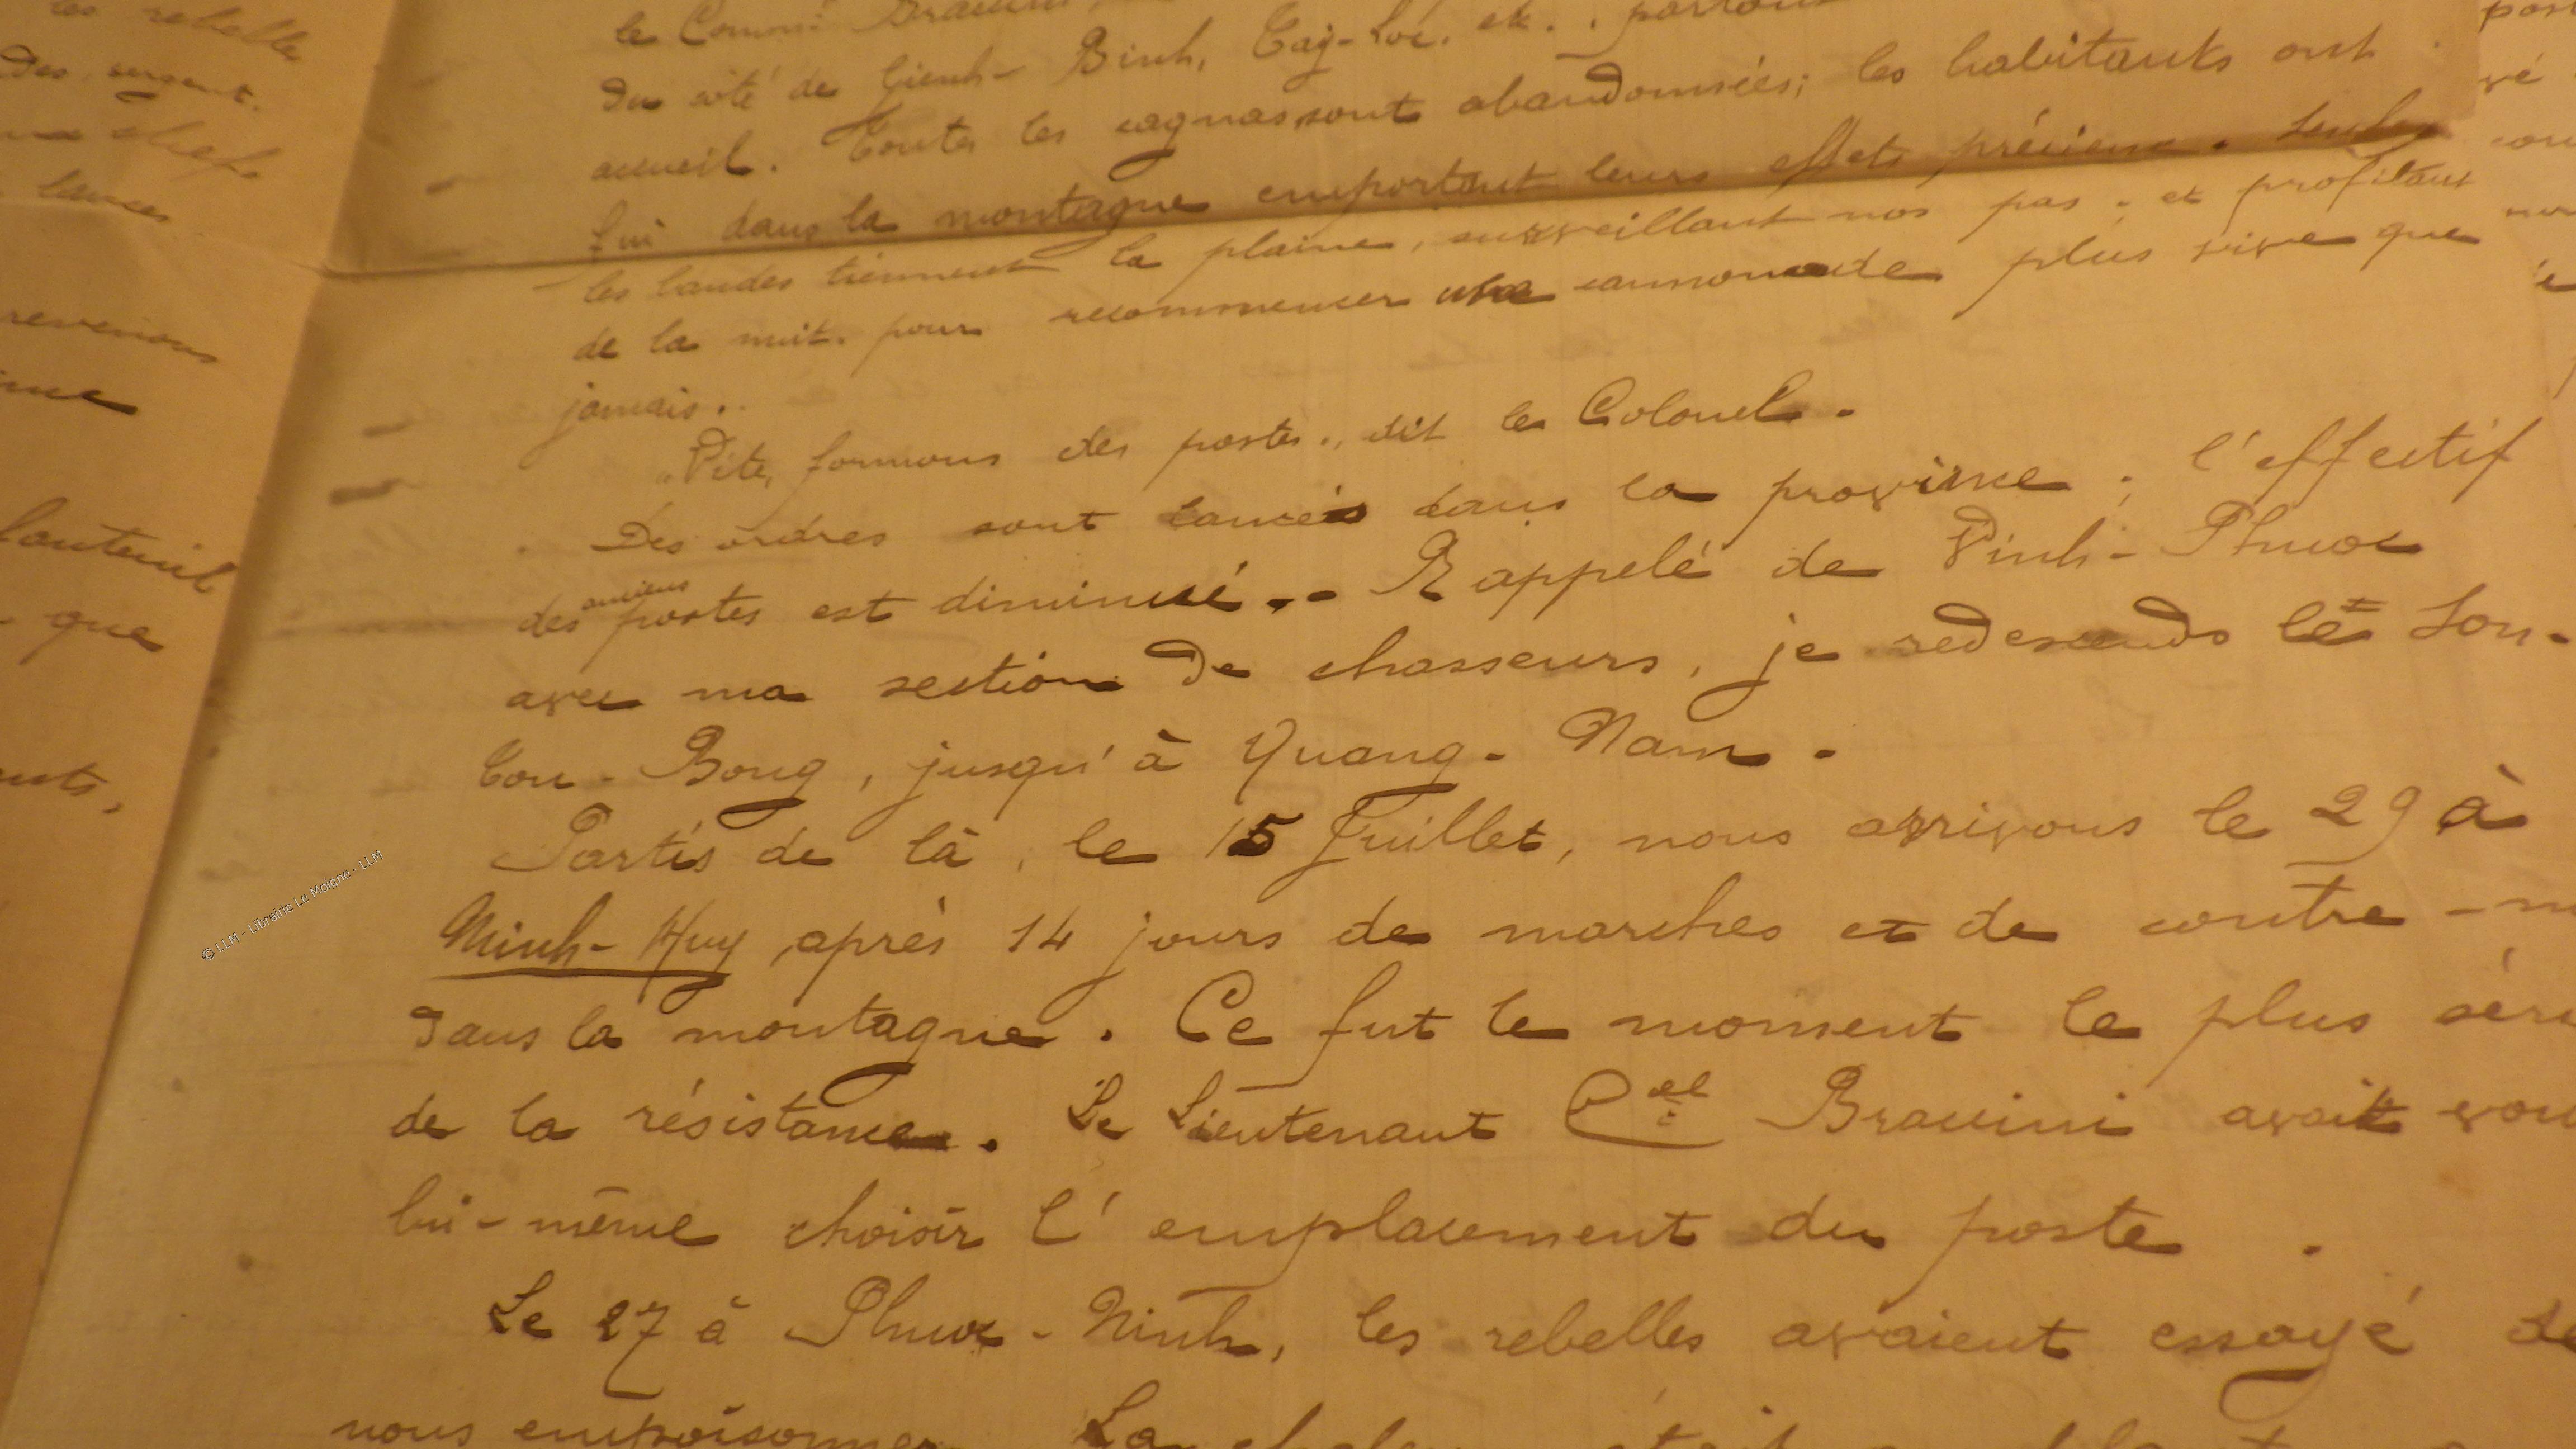 les rebelles
Des sergent.
chefs
lances
revenions
fauteuil
que
le Comm!
du côté de Tienh-Binh, Cay-Loc. etc. . partout
accueil. Toutes les cagnas sont abandonnées; les habitants ont
fui dans la montagne emportant leurs effets précieux. Seules
les bandes tiennent la plaine, surveillant nos pas. et profitant
de la nuit. pour recommencer une cannonade plus vive que
jamais..
"Vite, formons des postes., dit le Colonel.
Des ordres sont lancés dans la province; l'effectif
des anciens postes est diminué.. Rappelé de Vinh-Phuoc
avec ma section de chasseurs, je redescends le Son-
Cou-Bong, jusqu'à Quang-Nam.
Partis de là, le 15 Juillet, nous arrivons le 29 à
Minh-Huy, après 14 jours de marches et de contre-m
dans la montagne. Ce fut le moment le plus séri
de la résistance. Le Lieutenant Cel Braccini avait vou
lui-même choisir l'emplacement du poste.
Le 27 à Phuoc-Ninh, les rebelles avaient essayé de
nous empoisonner. La
© LLM - Librairie Le Moigne - LLM